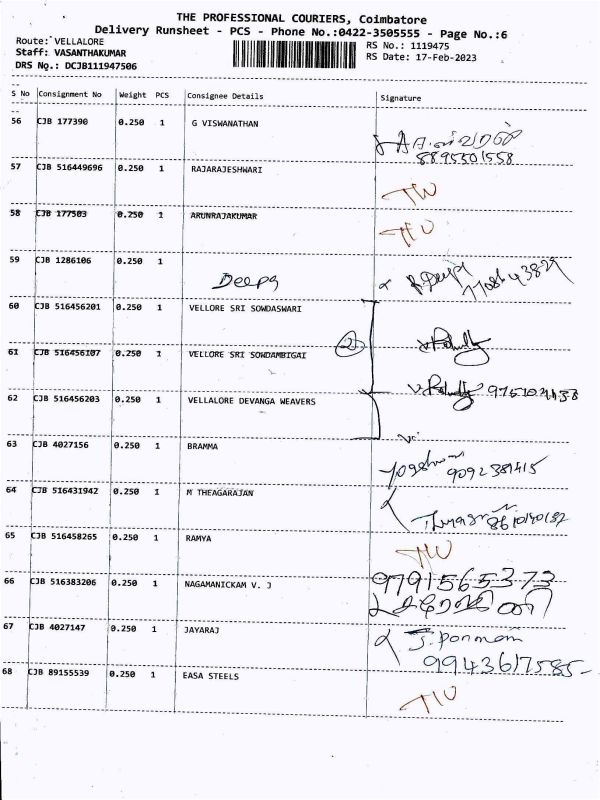 THE PROFESSIONAL COURIERS, Coimbatore
Delivery Runsheet - PCS - Phone No.:0422-3505555 - Page No.:6
Route: VELLALORE RS No.: 1119475
Staff: VASANTHAKUMAR RS Date: 17-Feb-2023
DRS No.: DCJB111947506
S No Consignment No Weight PCS Consignee Details Signature
56 CJB 177390 0.250 1 G VISWANATHAN
8895301558
57 CJB 516449696 0.250 1 RAJARAJESHWARI
58 CJB 177503 0.250 1 ARUNRAJAKUMAR
59 CJB 1286106 0.250 1
Deepa
60 CJB 516456201 0.250 1 VELLORE SRI SOWDASWARI
61 CJB 516456107 0.250 1 VELLORE SRI SOWDAMBIGAI
62 CJB 516456203 0.250 1 VELLALORE DEVANGA WEAVERS
63 CJB 4027156 0.250 1 BRAMMA
9092381415
64 CJB 516431942 0.250 1 M THEAGARAJAN
65 CJB 516458265 0.250 1 RAMYA
66 CJB 516383206 0.250 1 NAGAMANICKAM V. J 9791565373
67 CJB 4027147 0.250 1 JAYARAJ
9943617585
68 CJB 89155539 0.250 1 EASA STEELS